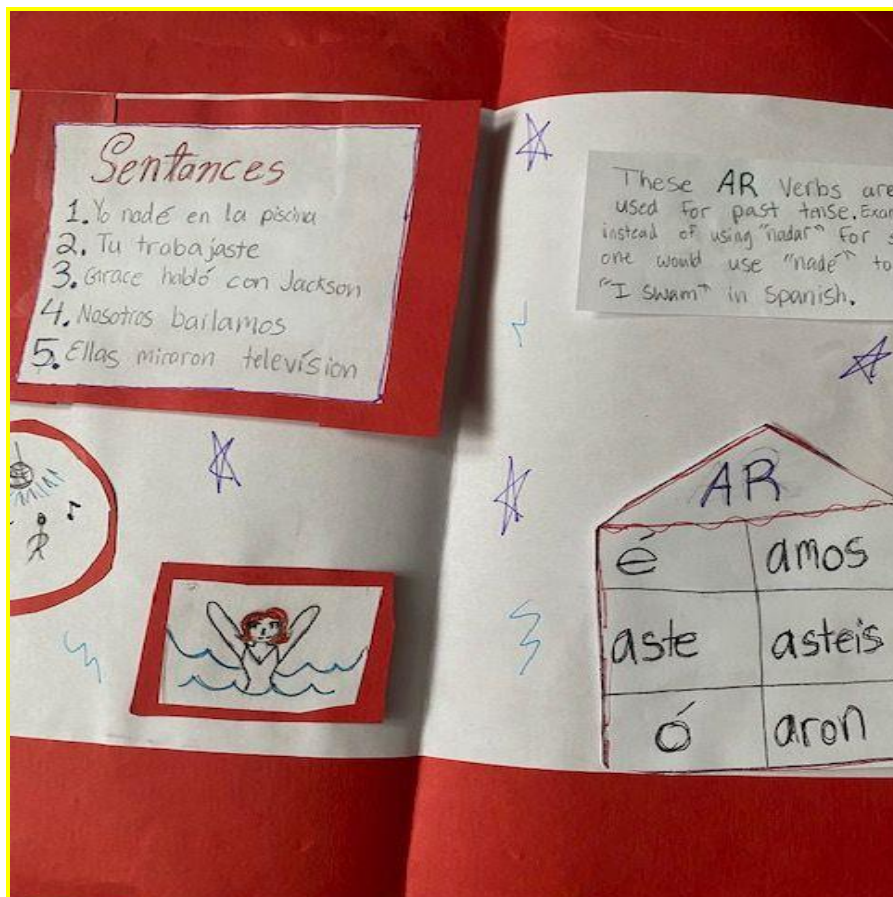 Sentances
1. Yo nadé en la piscina
2. Tu trabajaste
3. Grace habló con Jackson
4. Nosotros bailamos
5. Ellas miraron televísion
These AR Verbs are
used for past tense. Exam
instead of using "nadar" for s
one would use "nadé" to
"I swam" in Spanish.
AR
é amos
aste asteis
ó aron